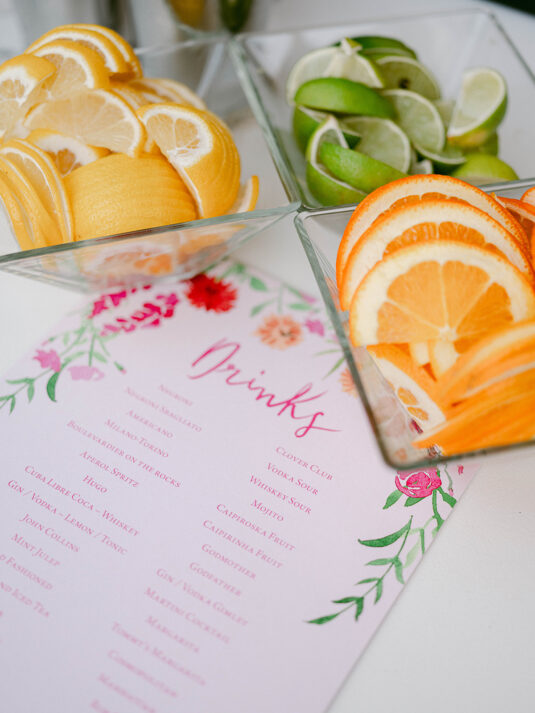 Drinks
Negroni
Negroni Sbagliato
Americano
Milano-Torino
Boulevardier on the rocks
Aperol Spritz
Hugo
Cuba Libre Coca - Whiskey
Gin / Vodka - Lemon / Tonic
John Collins
Mint Julep
Fashioned
Iced Tea
Clover Club
Vodka Sour
Whiskey Sour
Mojito
Caipiroska Fruit
Caipirinha Fruit
Godmother
Godfather
Gin / Vodka Gimlet
Martini Cocktail
Margarita
Tommy's Margarita
Cosmopolitan
Manhattan